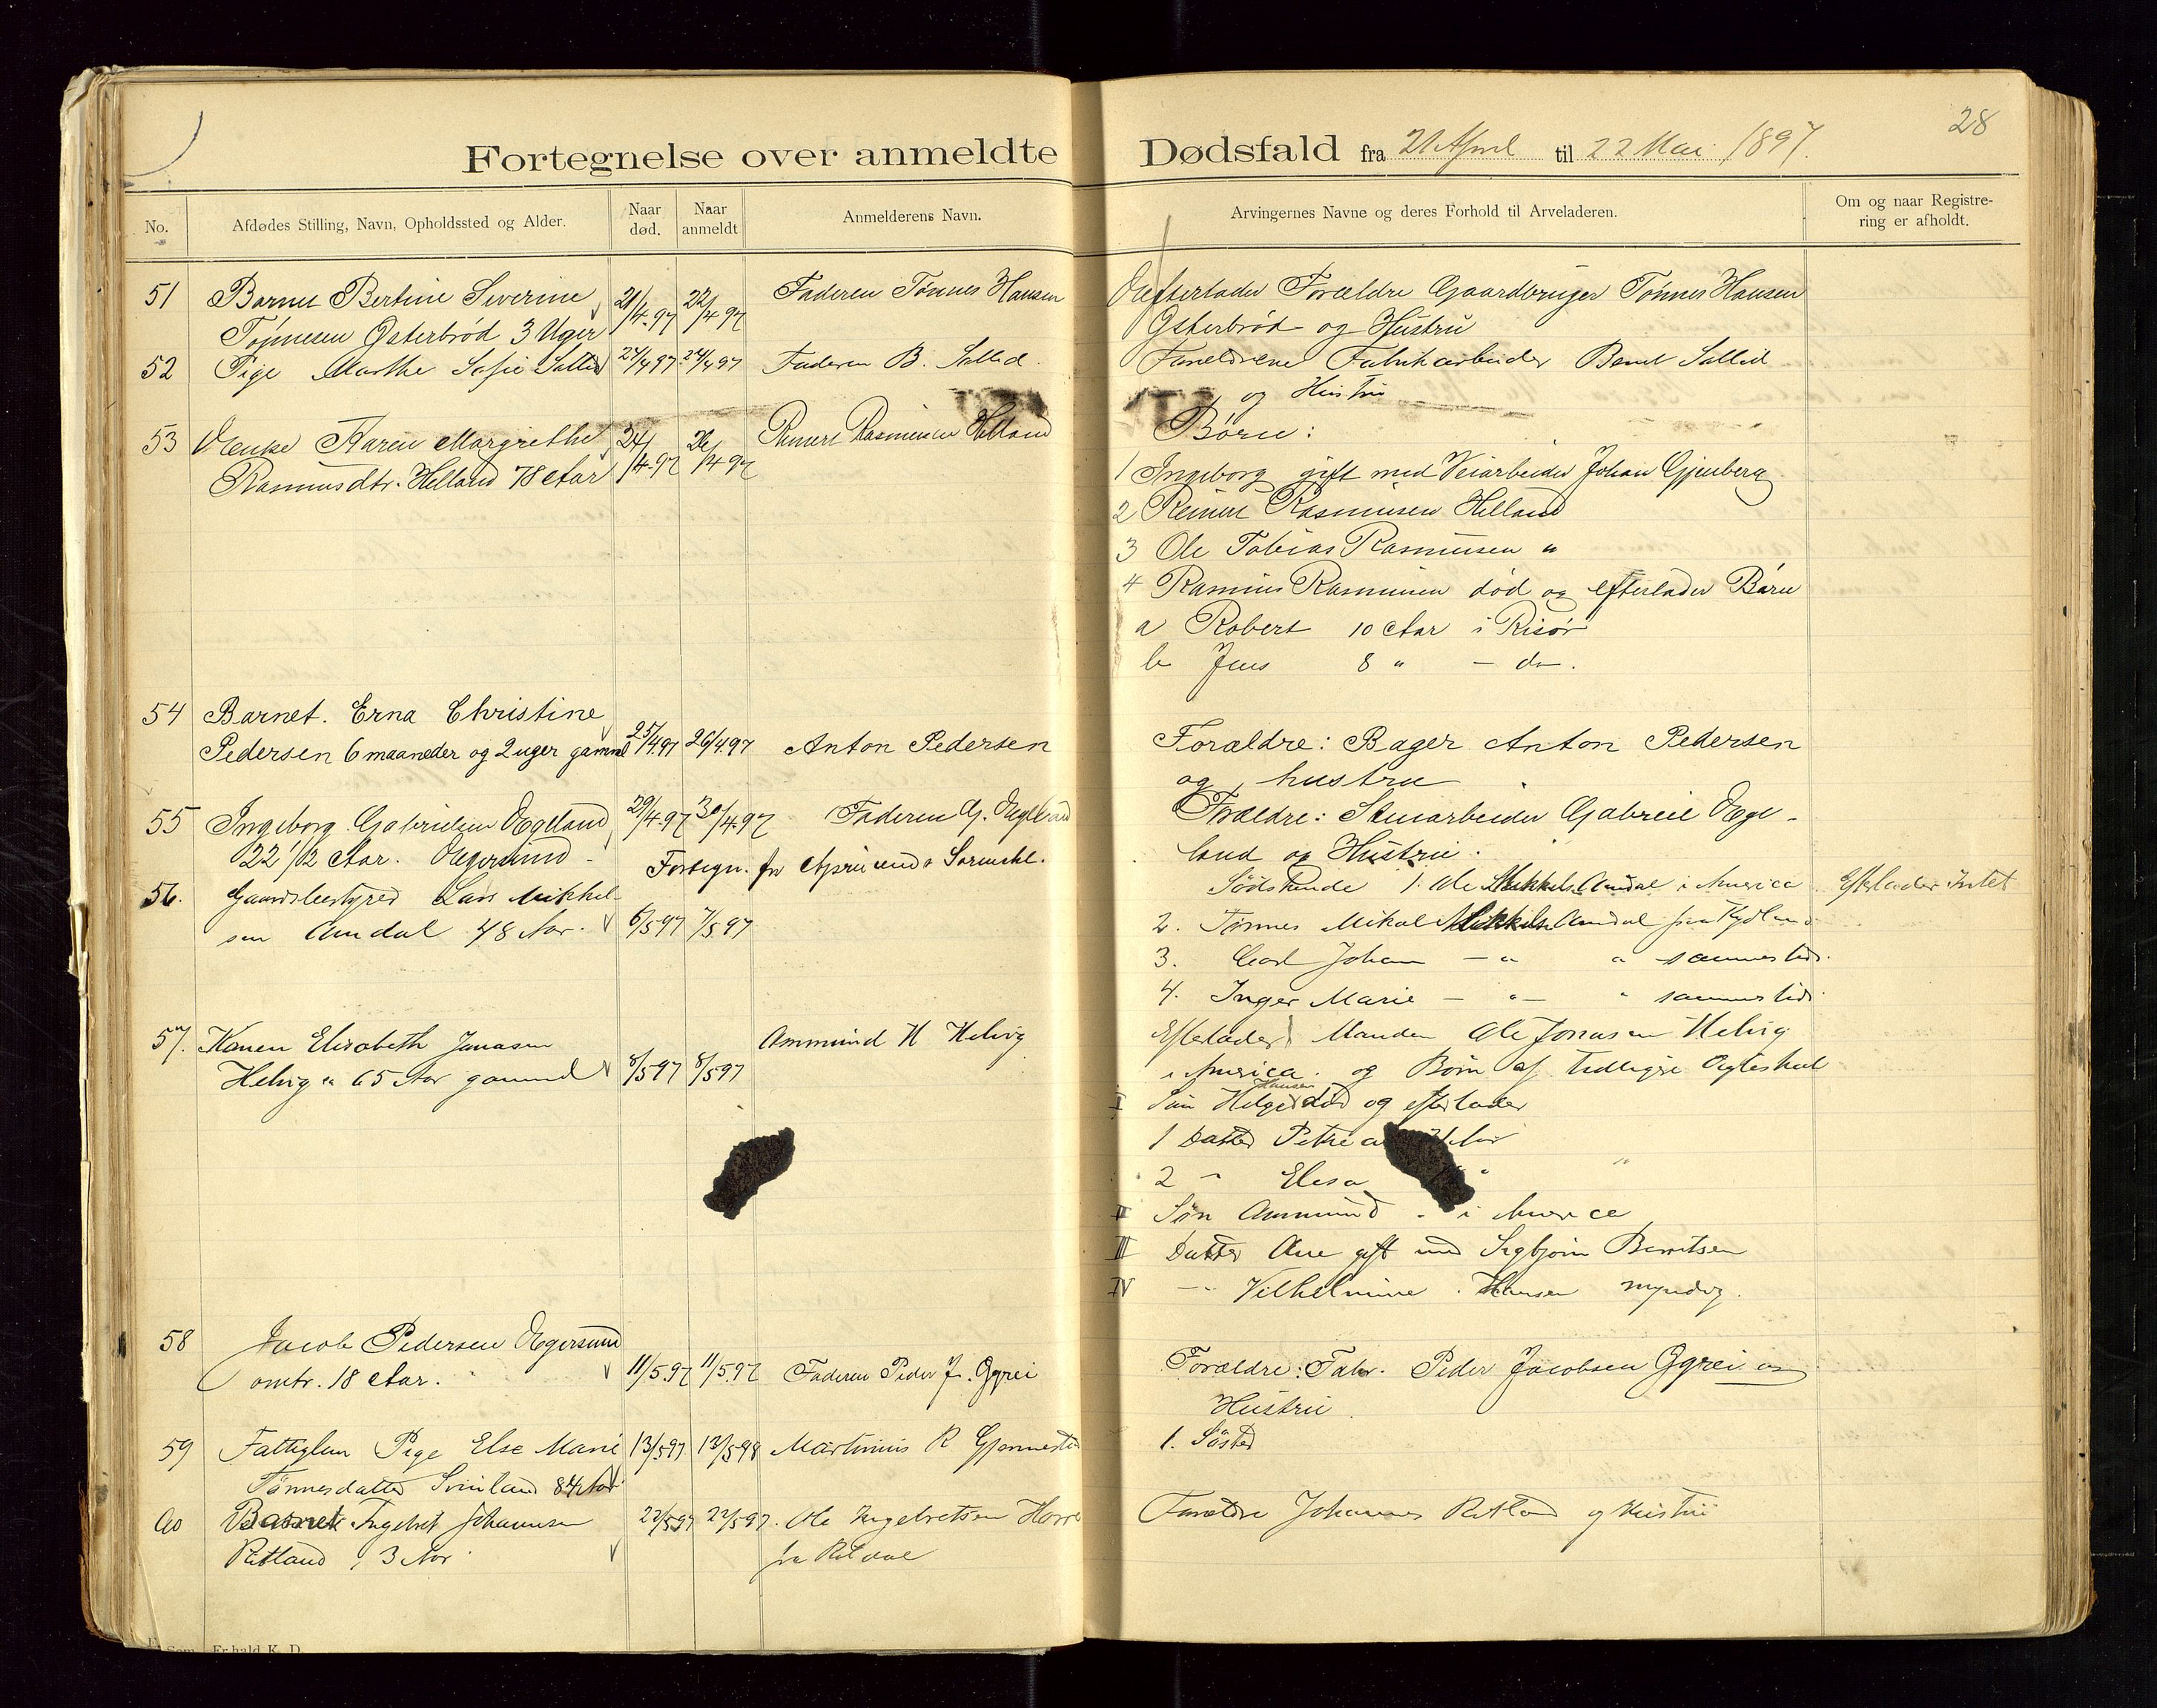 28
Fortegnelse over anmeldte Dødsfald fra 21 April til 22 Mai 1897.
No.
Afdødes Stilling, Navn, Opholdssted og Alder.
Naar død.
Naar anmeldt
Anmelderens Navn.
Arvingernes Navne og deres Forhold til Arveladeren.
Om og naar Registrering er afholdt.
51 Barnet Bertine Severine 21/4-97 22/4 97 Faderen Tønnes Hansen Efterlader Forældre Gaardbruger Tønnes Hansen
Tønnesen Østerbrød 3 Uger Østerbrød og Hustru
52 Pige Marthe Sofie 24/4 97 24/4 97 Faderen B. Forældrene Fabrikarbeider Bernt
og Hustru
53 Enke Karen Margrethe 24/4-97 26/4 97 Reinert Rasmusen Helland Børn:
Rasmusdtr. Helland 78 Aar
1 Ingeborg gift med Veiarbeider Johan Gjenberg
2 Reinert Rasmusen Helland
3 Ole Tobias Rasmusen "
4 Rasmus Rasmusen død og efterlader Børn
a Robert 10 Aar i Risør
b Jens 8 " - do.
54 Barnet. Erna Christine
Pedersen 6 maaneder og 2 uger gammel 25/4.97 26/4.97 Anton Pedersen Forældre: Bager Anton Pedersen
og hustru
55 Ingeborg Gabrielsen Egeland 29/4-97 30/4.97 Faderen G. Egeland Forældre: Stenarbeider Gabriel Ege-
22 1/2 Aar. Egersund - land og Hustru.
Fortegn. for April sendt Sorenskr.
56. Gaardsbestyrer Lars Mikkel- Sødskende 1. Ole Mikkels. Amdal i America Efterlader Intet
sen Amdal 48 Aar. 6/5 97 7/5 97 2. Tønnes Mikal Mikkelsen Amdal
3. Carl Johan - " " sammesteds.
4. Inger Marie - " - " sammesteds
57. Konen Elisabeth Jonasen Ammund H Helvig Efterlader Manden Ole Jonasen Helvig
Helvig 65 Aar gammel 8/5 97 8/5 97 i America. og Børn af tidligere Ægteskab
I Søn Helge Hansen død og efterlader
1 Datter Aar
2 " Elisa "
II Søn Ammund - i America
III Datter Ane gift med Sigbjørn Berntsen
IV - " - Vilhelmine Hansen myndig.
58 Jacob Pedersen Egersund
omtr. 18 Aar. 11/5.97 11/5.97 Faderen Peder J. Ggrei Forældre: Fabr. Peder Jacobsen Ggrei og
Hustru.
59 Fattiglem Pige Else Marie 13/5 97 13/5 98 Martinius R 1. Søster
Tønnesdatter 84 Aar
60 Barnet Ingebret Johannesen 22/5 97 22/5 97. Ole Ingebretsen Forældre Johannes Retland og Hustru
Retland, 3 Aar fra